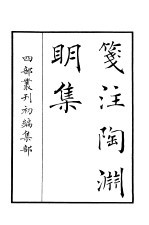 箋注陶淵
明集
四部叢刊初編集部